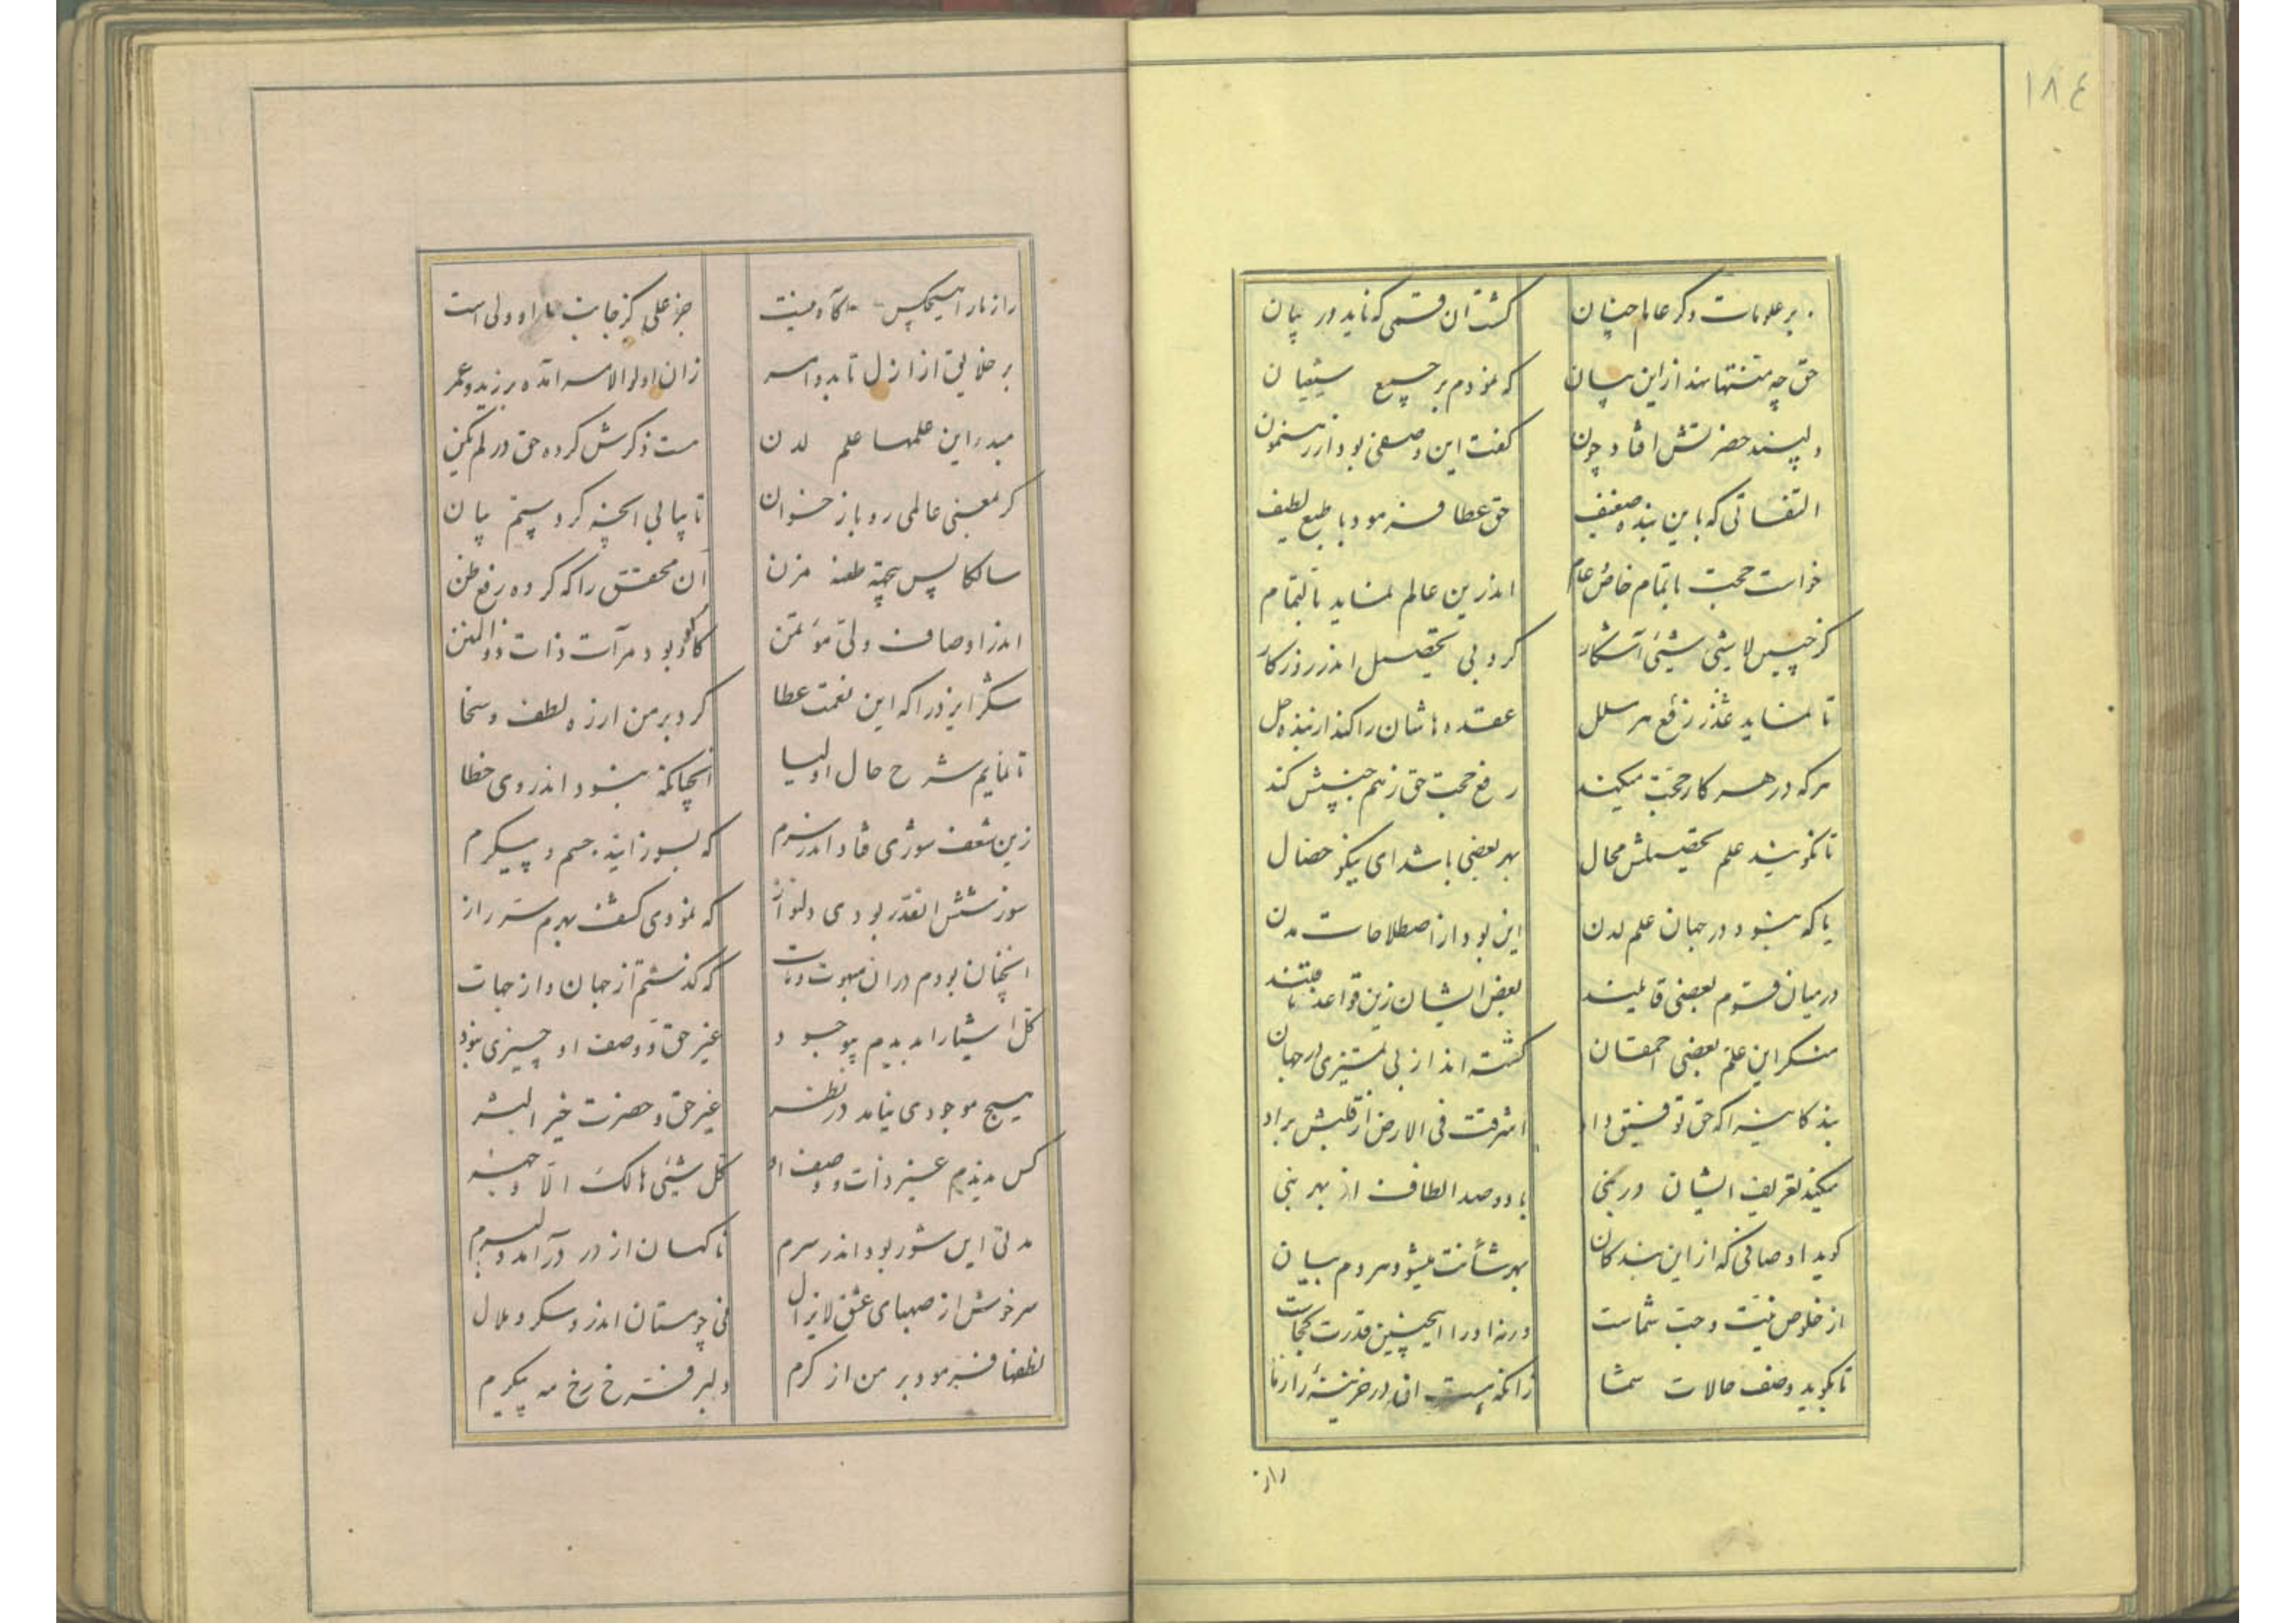 ١٨٤
بر علومات دگر عالم چنان گشت آن قسمی که ناید در بیان
حق چه منتها نهد از این بیان که نمودم بر جمیع شیعیان
دلپسند حضرتش افتاد چون گفت این وصفی بود از رهنمون
التفاتی که باین بنده ضعیف حق عطا فرمود با طبع لطیف
خواست حجت با تمام خاص و عام اندرین عالم نماید بالتمام
کز چنین لاشیئی شیئی آشکار کرد بی تحصیل اندر روزکار
تا نماید عذر رفع هر سلل عقده هاشان را کند ار بنده حل
هرکه در هر کار حجت میکند رفع حجت حق زهم جنسش کند
تا نگویند علم تحصیلش محال بهر بعضی باشد ای نیکو خصال
یا که نبود در جهان علم لدن این بود از اصطلاحات مدن
در میان قوم بعضی قائلند بعض ایشان زین قواعد
منکر این علم بعضی احمقان گشته اند از بی تمیزی در جهان
بندکانیرا که حق توفیق داد اشرقت فی الارض از قلبش براد
میکند تعریف ایشان در نبی با دو صد الطاف از بهر بنی
کوید اوصافی که از این بندکان بهر شأنت میشود هر دم بیان
از خلوص نیت و حب شماست ورنه او را اینچنین قدرت کجاست
تا بگوید وصف حالات شما زانکه هست آن در خزینهٔ راز ما
راز
راز ما را هیچکس آگاه نیست جز علی کز جانب ما او ولی است
بر خلایق از ازل تا بد و اسر زان اولوالامر آمده بر زید و عمر
مبدر این علمها علم لدن هست ذکرش کرده حق در لم یکن
گر بمعنی عالمی رو باز خوان تا بیابی آنچه کردستم بیان
سالکا پس بیجهة طعنه مزن آن محقق را که کرده رفع ظن
اندر اوصاف ولی مؤتمن کاو بود مرآت ذات ذوالمنن
شکر ایزد را که این نعمت عطا کرد بر من از ره لطف و سخا
تا نمایم شرح حال اولیا آنچنانکه نبود اندر وی خطا
زین شعف سوزی فتاد اندر سرم که بسوزانید جسم و پیکرم
سوزشش آنقدر بودی دلنواز که نمودی کشف بهرم سر راز
آنچنان بودم در آن مبهوت و مات که گذشتم از جهان و از جهات
کل اشیا را ندیدم بوجود غیر حق و وصف او چیزی نبود
هیچ موجودی نیامد در نظر غیر حق و حضرت خیر البشر
کس ندیدم غیر ذات و وصف او کل شیئی هالک الا وجهه
مدتی این شور بود اندر سرم ناگهان از در درآمد دلبرم
سرخوش از صهبای عشق لایزال نی چو مستان اندر و سکر و ملال
لطفها فرمود بر من از کرم دلبر فرخ رخ مه پیکرم